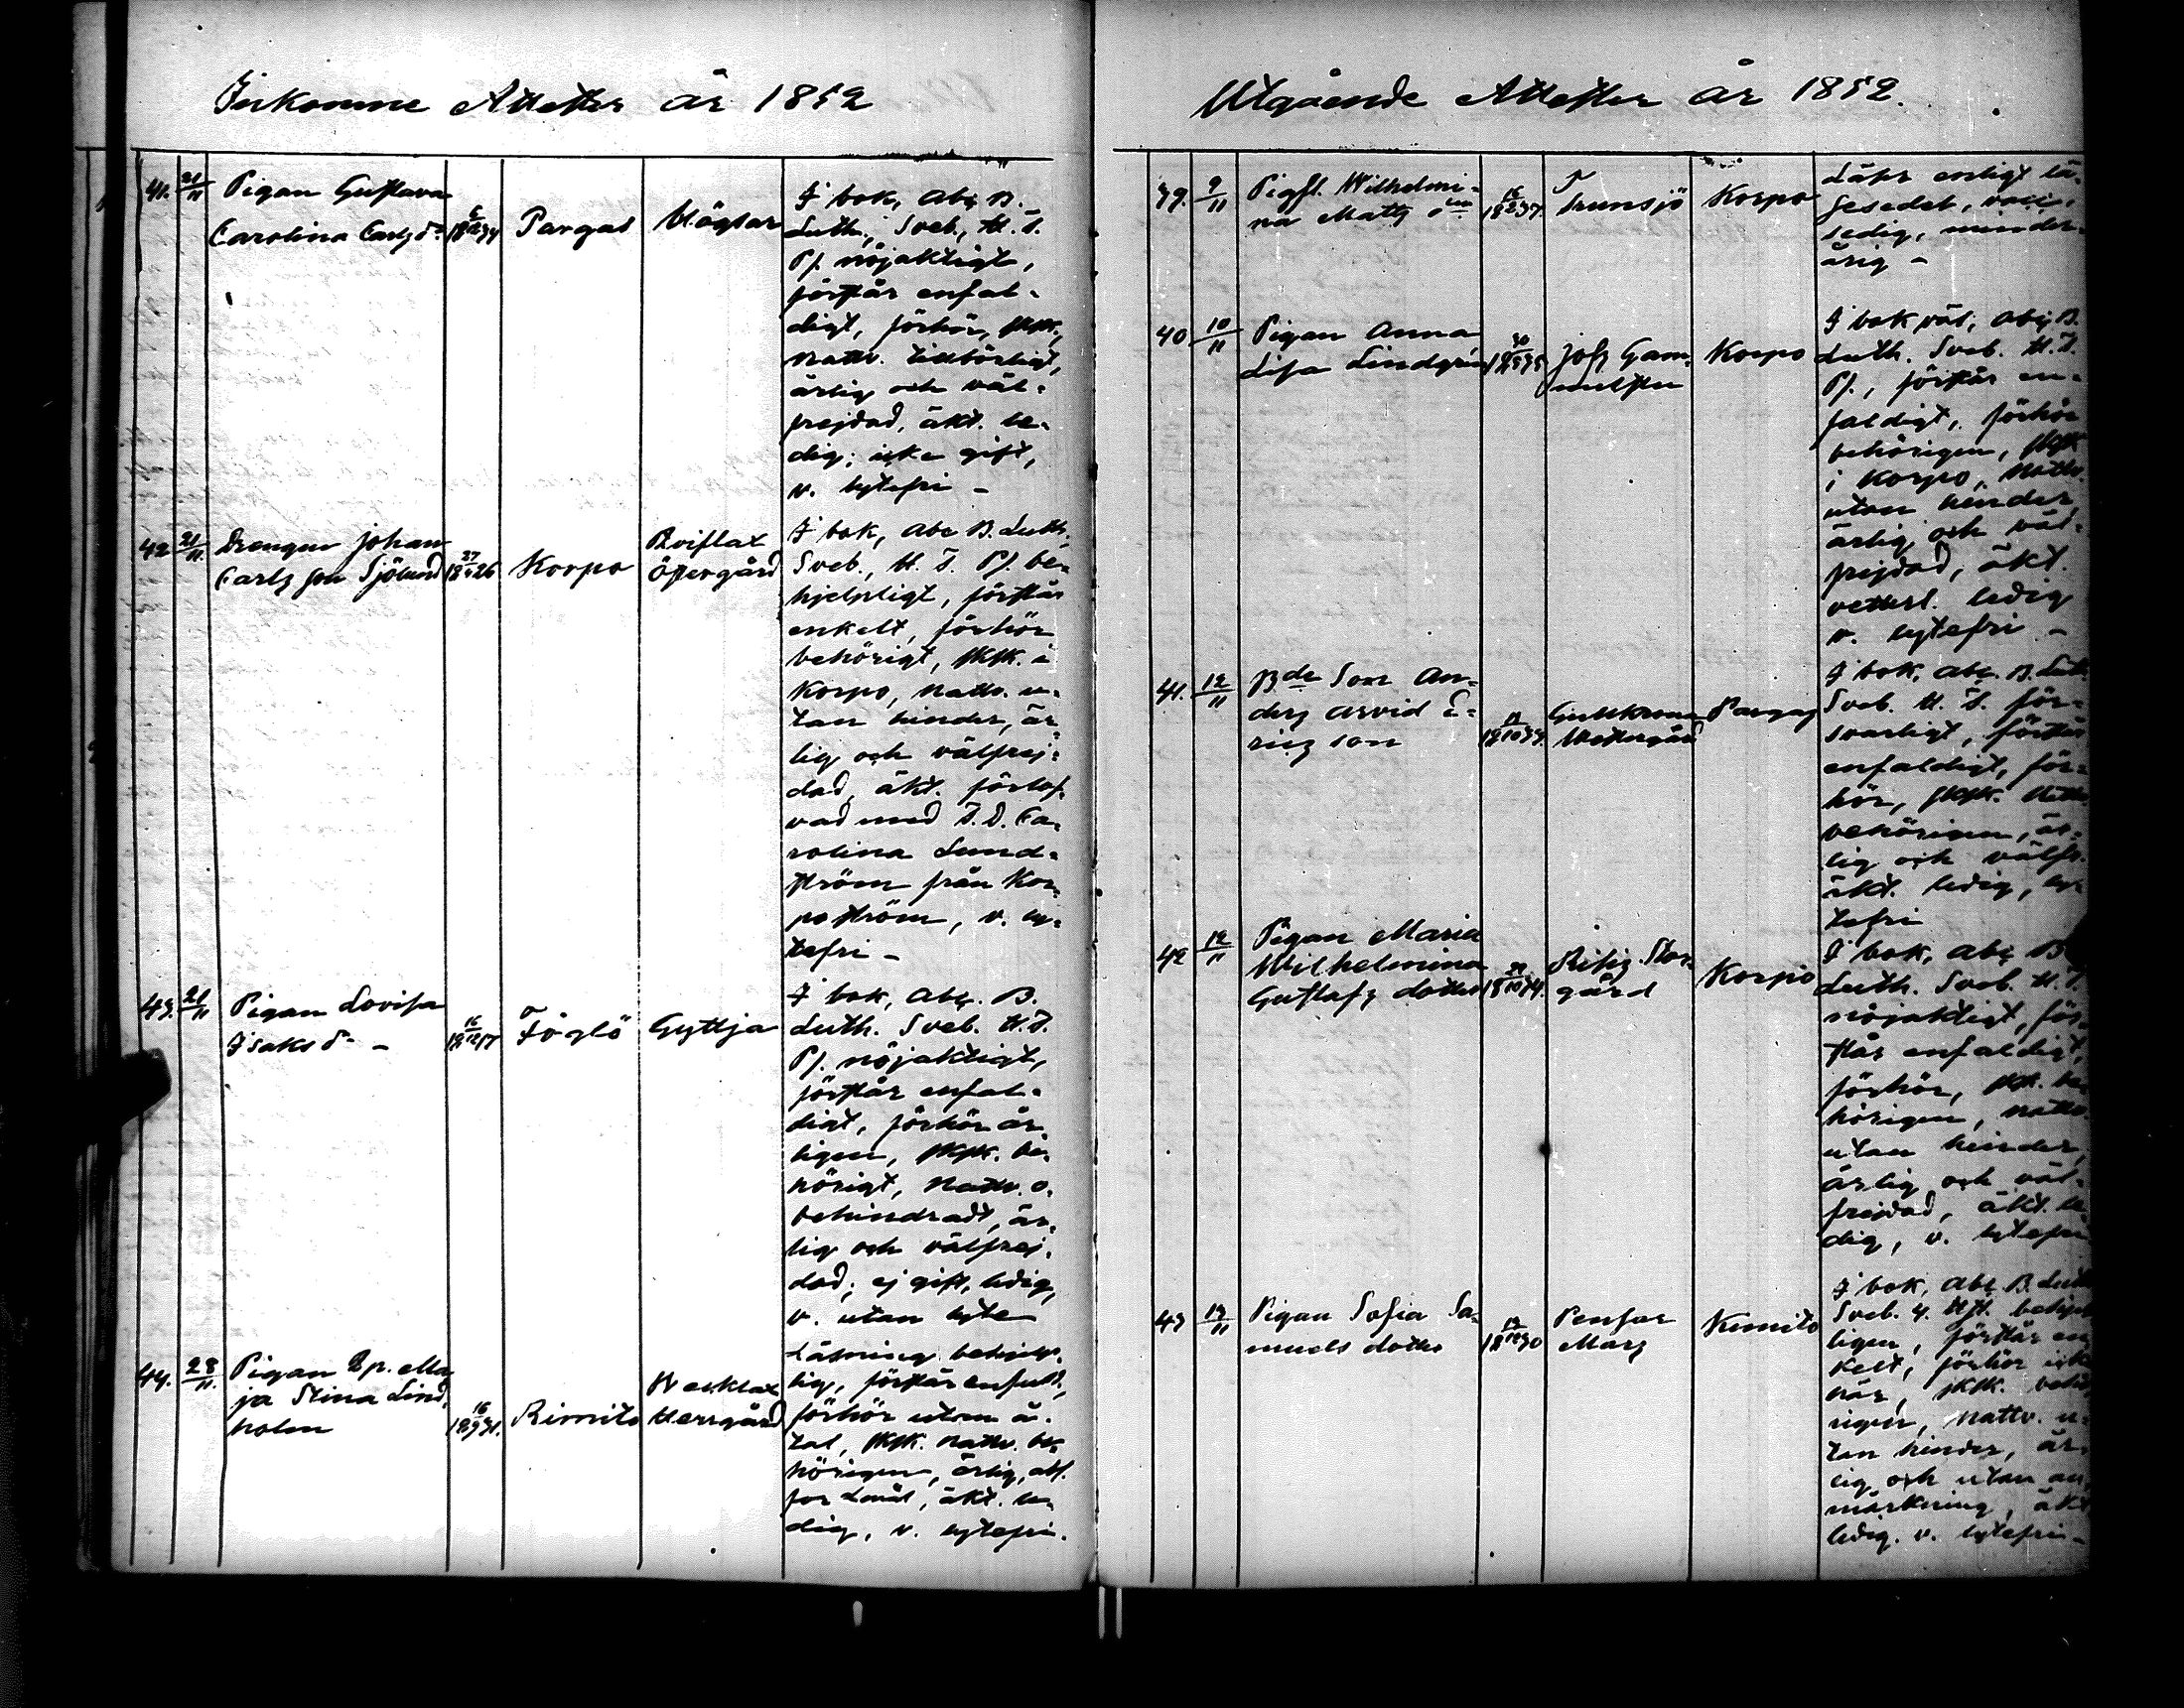 Inkomne Attester år 1852
41. 21/11 Pigan Gustava
Carolina Carls dr 18 6/12 34 Pargas Högsar
I bok, Abc B.
Luth., Sveb., H. T.
Ps. nöjaktigt,
förstår enfal-
digt, förhör, skrk.
nattv. tillbörligt,
ärlig och väl-
frejdad, äkt. le-
dig; icke gift,
v. lytefri -
42 21/11. Drengen Johan
Carlsson Sjölund 18 27/5 26 Korpo
Roiflax
Östergård
I bok, Abc B. Luth.
Sveb., H. T. Ps. be-
hjelpligt, förstår
enkelt, förhör
behörigt, skrk. i
Korpo, nattv. u-
tan hinder, är-
lig och välfrej-
dad, äkt. förlof-
vad med T. D. Ca-
rolina Lund-
ström från Kor-
poström, v. ly-
tefri -
43. 21/11 Pigan Lovisa
Isaks dr - 18 16/12 17 Föglö Gyttja
I bok, Abc. B.
Luth. Sveb. H. T.
Ps. nöjaktigt,
förstår enfal-
digt, förhör är-
ligen, skrk. be-
hörigt, Nattv. o-
behindradt, är-
lig och välfrej-
dad; ej gift, ledig,
v. utan lyte
44. 28/11. Pigan Ma
ja Stina Lind-
holm 18 16/9 31. Rimito
Herrgård
Läsning behjelp-
lig, förstår enfald.,
förhör utom å-
tal, skrk. nattv. be-
hörigen, ärlig,
äkt. le-
dig, v. lytefri.
Utgående Attester år 1852.
39. 9/11 Pigfl. Wilhelmi-
na Mats 18 16/2 37. Trunsjö Korpo
Läser enligt lä-
sesedel,
sedig, minder-
årig -
40 10/11 Pigan Anna
Lisa Lindgrén 18 30/5 35 Jofs Gam-
melsten Korpo
I bok väl, Abc B.
Luth. Sveb. H. T.
Ps., förstår en-
faldigt, förhör
behörigen, skrk
i Korpo, Nattv.
utan hinder
ärlig och väl-
frejdad, äkt.
vetterl. ledig
v. lytefri -
41. 12/11 Bde Son An-
ders Arvid E-
rics son Gullkrona
Westergård Pargas
I bok, Abc. B. Luth.
Sveb. H. T. för-
svarligt, förstår
enfaldigt, för-
hör, skrk. Nattv.
behörigen, är-
lig och välfr.
äkt. ledig, ly-
tefri
42 12/11 Pigan Maria
Wilhelmina
Gustafs dotter
Risis Stor-
gård Korpo
I bok, Abc B
Luth. Sveb. H. T.
nöjaktigt, för-
står enfaldigt,
förhör, skrk. be-
hörigen, nattv.
utan hinder,
ärlig och väl-
frejdad, äkt. le-
dig, v. lytefri
43 13/11 Pigan Sofia Sa-
muels dotter
Pensar
Mars Kimito
I bok, Abc B. Luth
Sveb. H. T. behjelp-
ligen, förstår en-
kelt, förhör icke
när, skrk. behö-
rigen, nattv. u-
tan hinder, är-
lig och utan an-
märkning, äkt
ledig. v. lytefri -